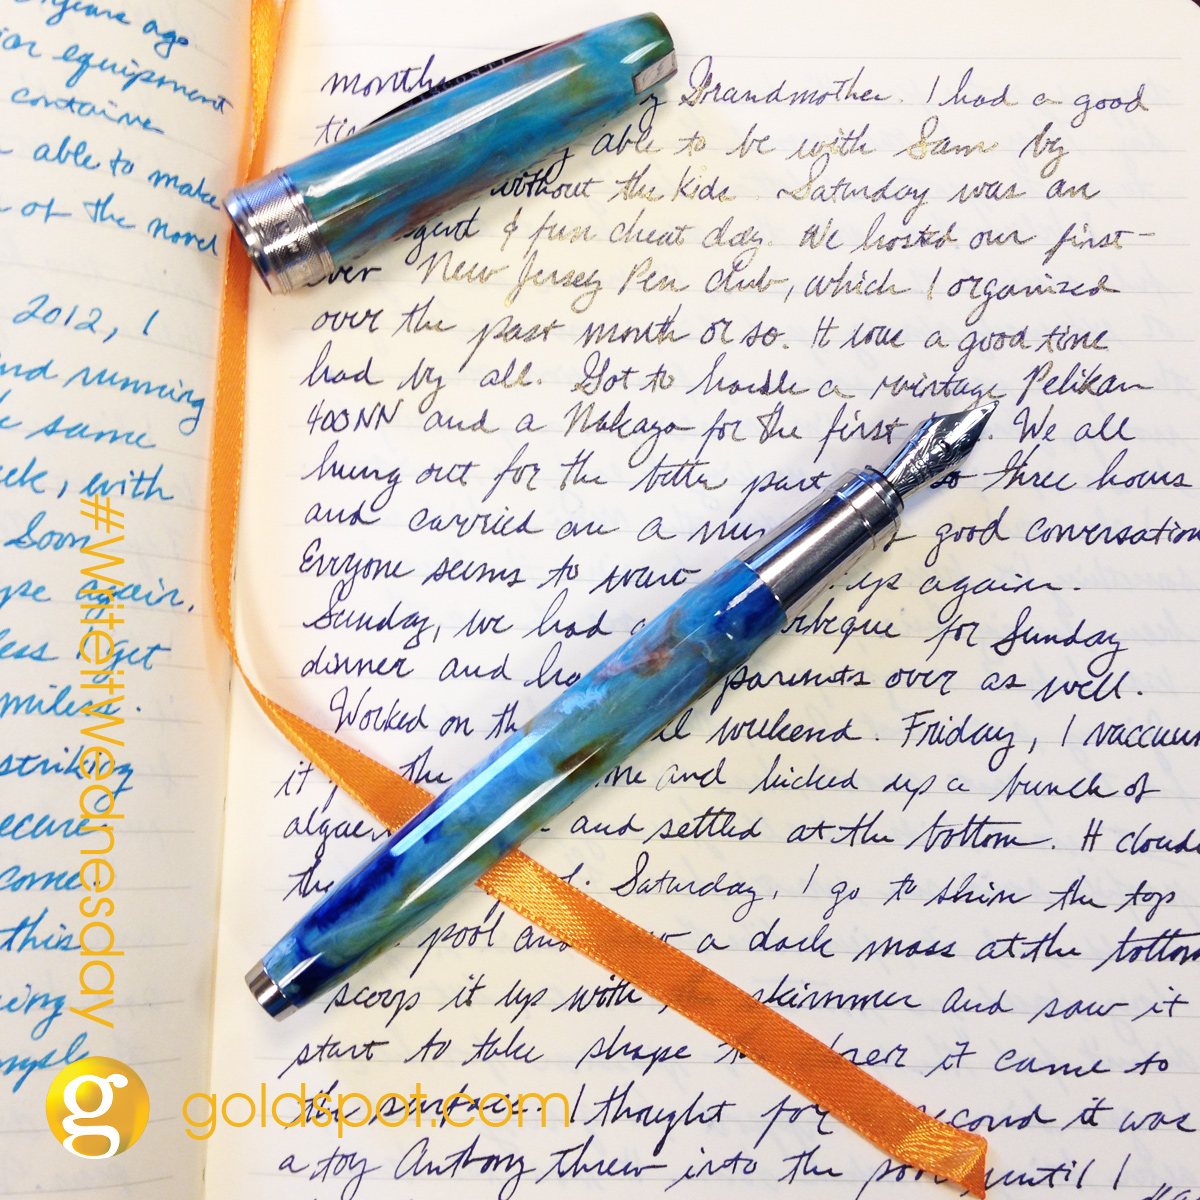 years ago
equipment
contains
able to make
of the novel
2012, I
and running
same
with
Soon
again.
less I get
miles.
striking
secure
come
this
months Grandmother. I had a good
able to be with Sam by
without the kids. Saturday was an
& fun cheat day. We hosted our first-
ever New Jersey Pen Club, which I organized
over the past month or so. It was a good time
had by all. Got to handle a vintage Pelikan
400NN and a Nakaya for the first. We all
hung out for the better part three hours
and carried on a good conversation
Everyone seems to want up again.
Sunday, we had for Sunday
dinner and parents over as well.
Worked on weekend. Friday, I vaccuum
it the and kicked up a bunch of
algae and settled at the bottom. It clouded
the Saturday, I go to skim the top
pool and a dark mass at the bottom
scoop it up with skimmer and saw it
start to take shape it came to
the surface. I thought for second it was
a toy Anthony threw into the pool until I
#writeitwednesday
g goldspot.com